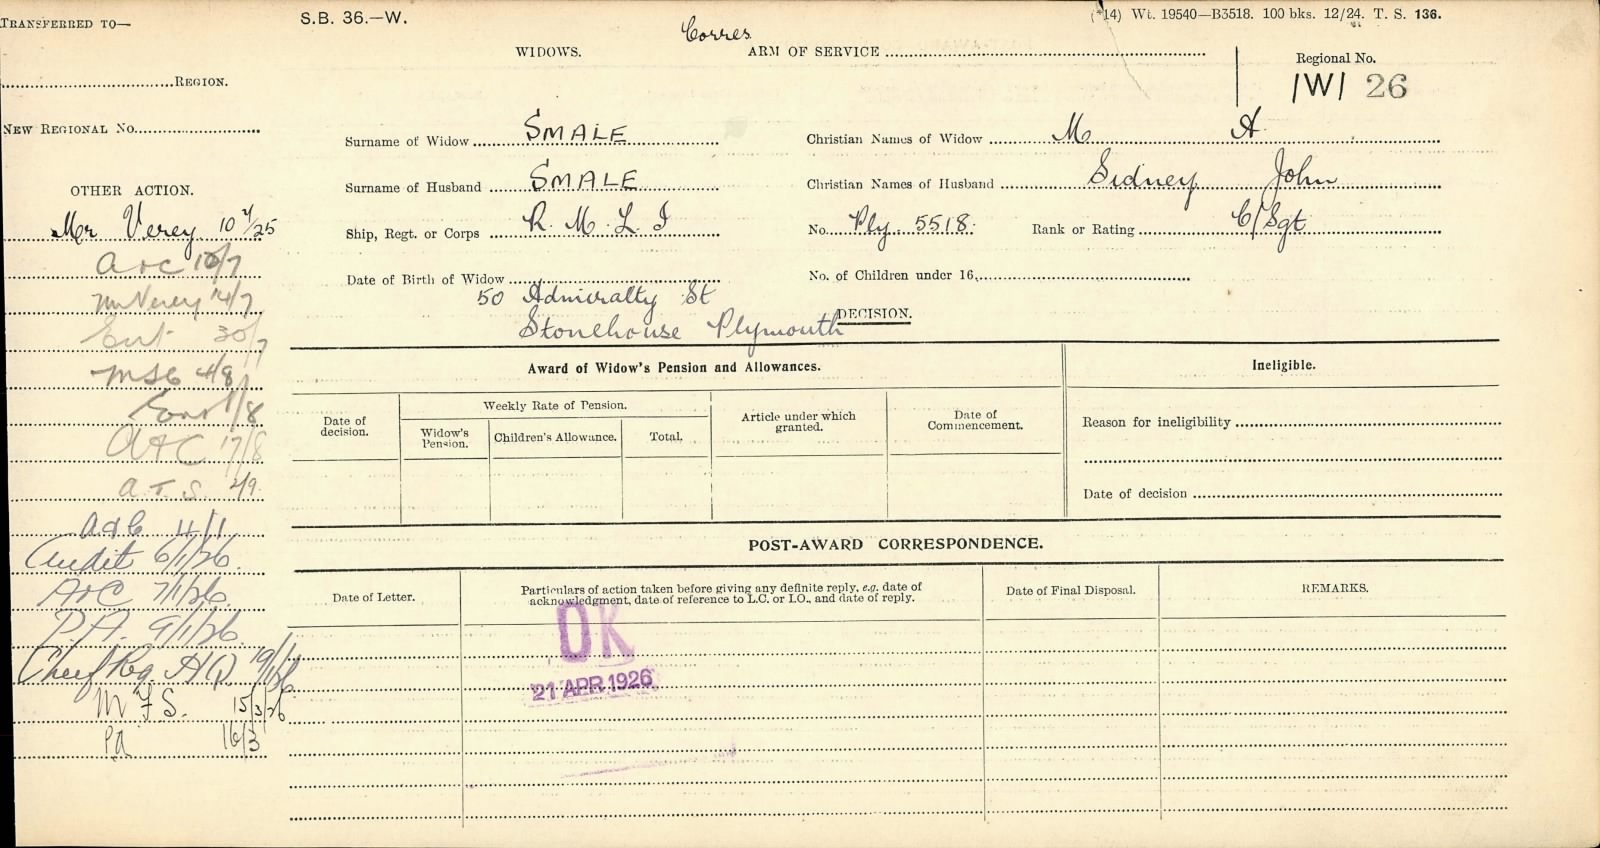 TRANSFERRED TO—
S.B. 36.—W.
(*14) Wt. 19540—B3518. 100 bks. 12/24. T. S. 136.
Corres
WIDOWS.
ARM OF SERVICE
Regional No.
/W/ 26
REGION.
NEW REGIONAL No.
Surname of Widow SMALE
Christian Names of Widow M A
Surname of Husband SMALE
Christian Names of Husband Sidney John
Ship, Regt. or Corps R. M. L. I
No. Ply. 5518.
Rank or Rating C/Sgt
Date of Birth of Widow
No. of Children under 16,
50 Admiralty St
Stonehouse Plymouth
DECISION.
OTHER ACTION.
Mr Verey 10/7/25
A+C 10/7
Mr Verey 14/7
30/7
4/8
/8
A+C 17/8
A.T.S. 2/9
A+C 4/1
Audit 6/1/26.
A+C 7/1/26.
P.A. 9/1/26.
Chief Reg. H.Q. 19/1/26.
M F S. 15/3/26
PA 16/3
Award of Widow's Pension and Allowances.
Ineligible.
Date of decision.
Weekly Rate of Pension.
Widow's Pension.
Children's Allowance.
Total.
Article under which granted.
Date of Commencement.
Reason for ineligibility
Date of decision
POST-AWARD CORRESPONDENCE.
Date of Letter.
Particulars of action taken before giving any definite reply, e.g. date of
acknowledgment, date of reference to L.C. or I.O., and date of reply.
Date of Final Disposal.
REMARKS.
OK
21 APR 1926